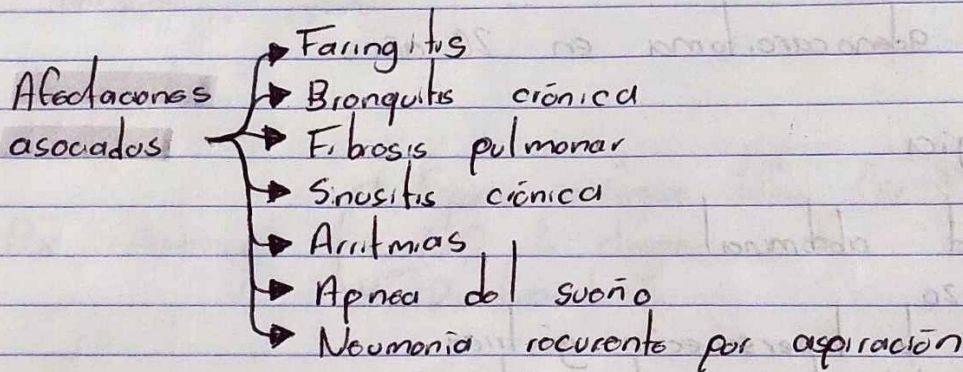 Afectaciones
asociados
Faringitis
Bronquitis crónica
Fibrosis pulmonar
Sinusitis crónica
Arritmias
Apnea del sueño
Neumonía recurente por aspiración